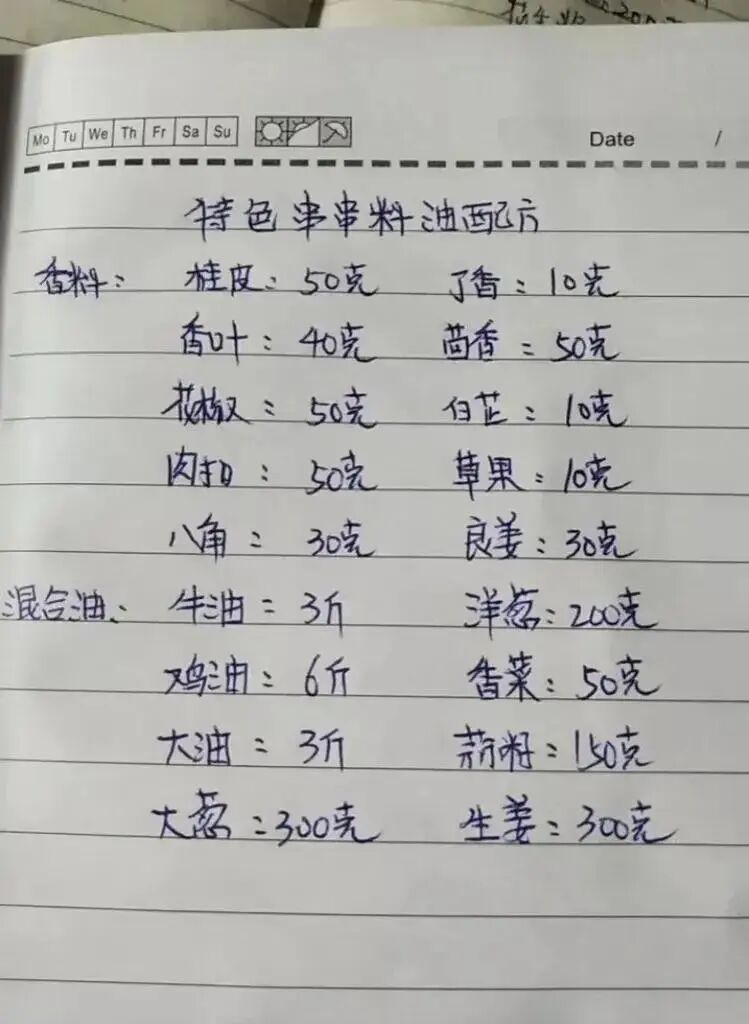 Mo Tu We Th Fr Sa Su
Date /
特色串串料油配方
香料: 桂皮: 50克 丁香: 10克
香叶: 40克 茴香: 50克
花椒: 50克 白芷: 10克
肉扣: 50克 草果: 10克
八角: 30克 良姜: 30克
混合油: 牛油: 3斤 洋葱: 200克
鸡油: 6斤 香菜: 50克
大油: 3斤 蒜籽: 150克
大葱: 300克 生姜: 300克